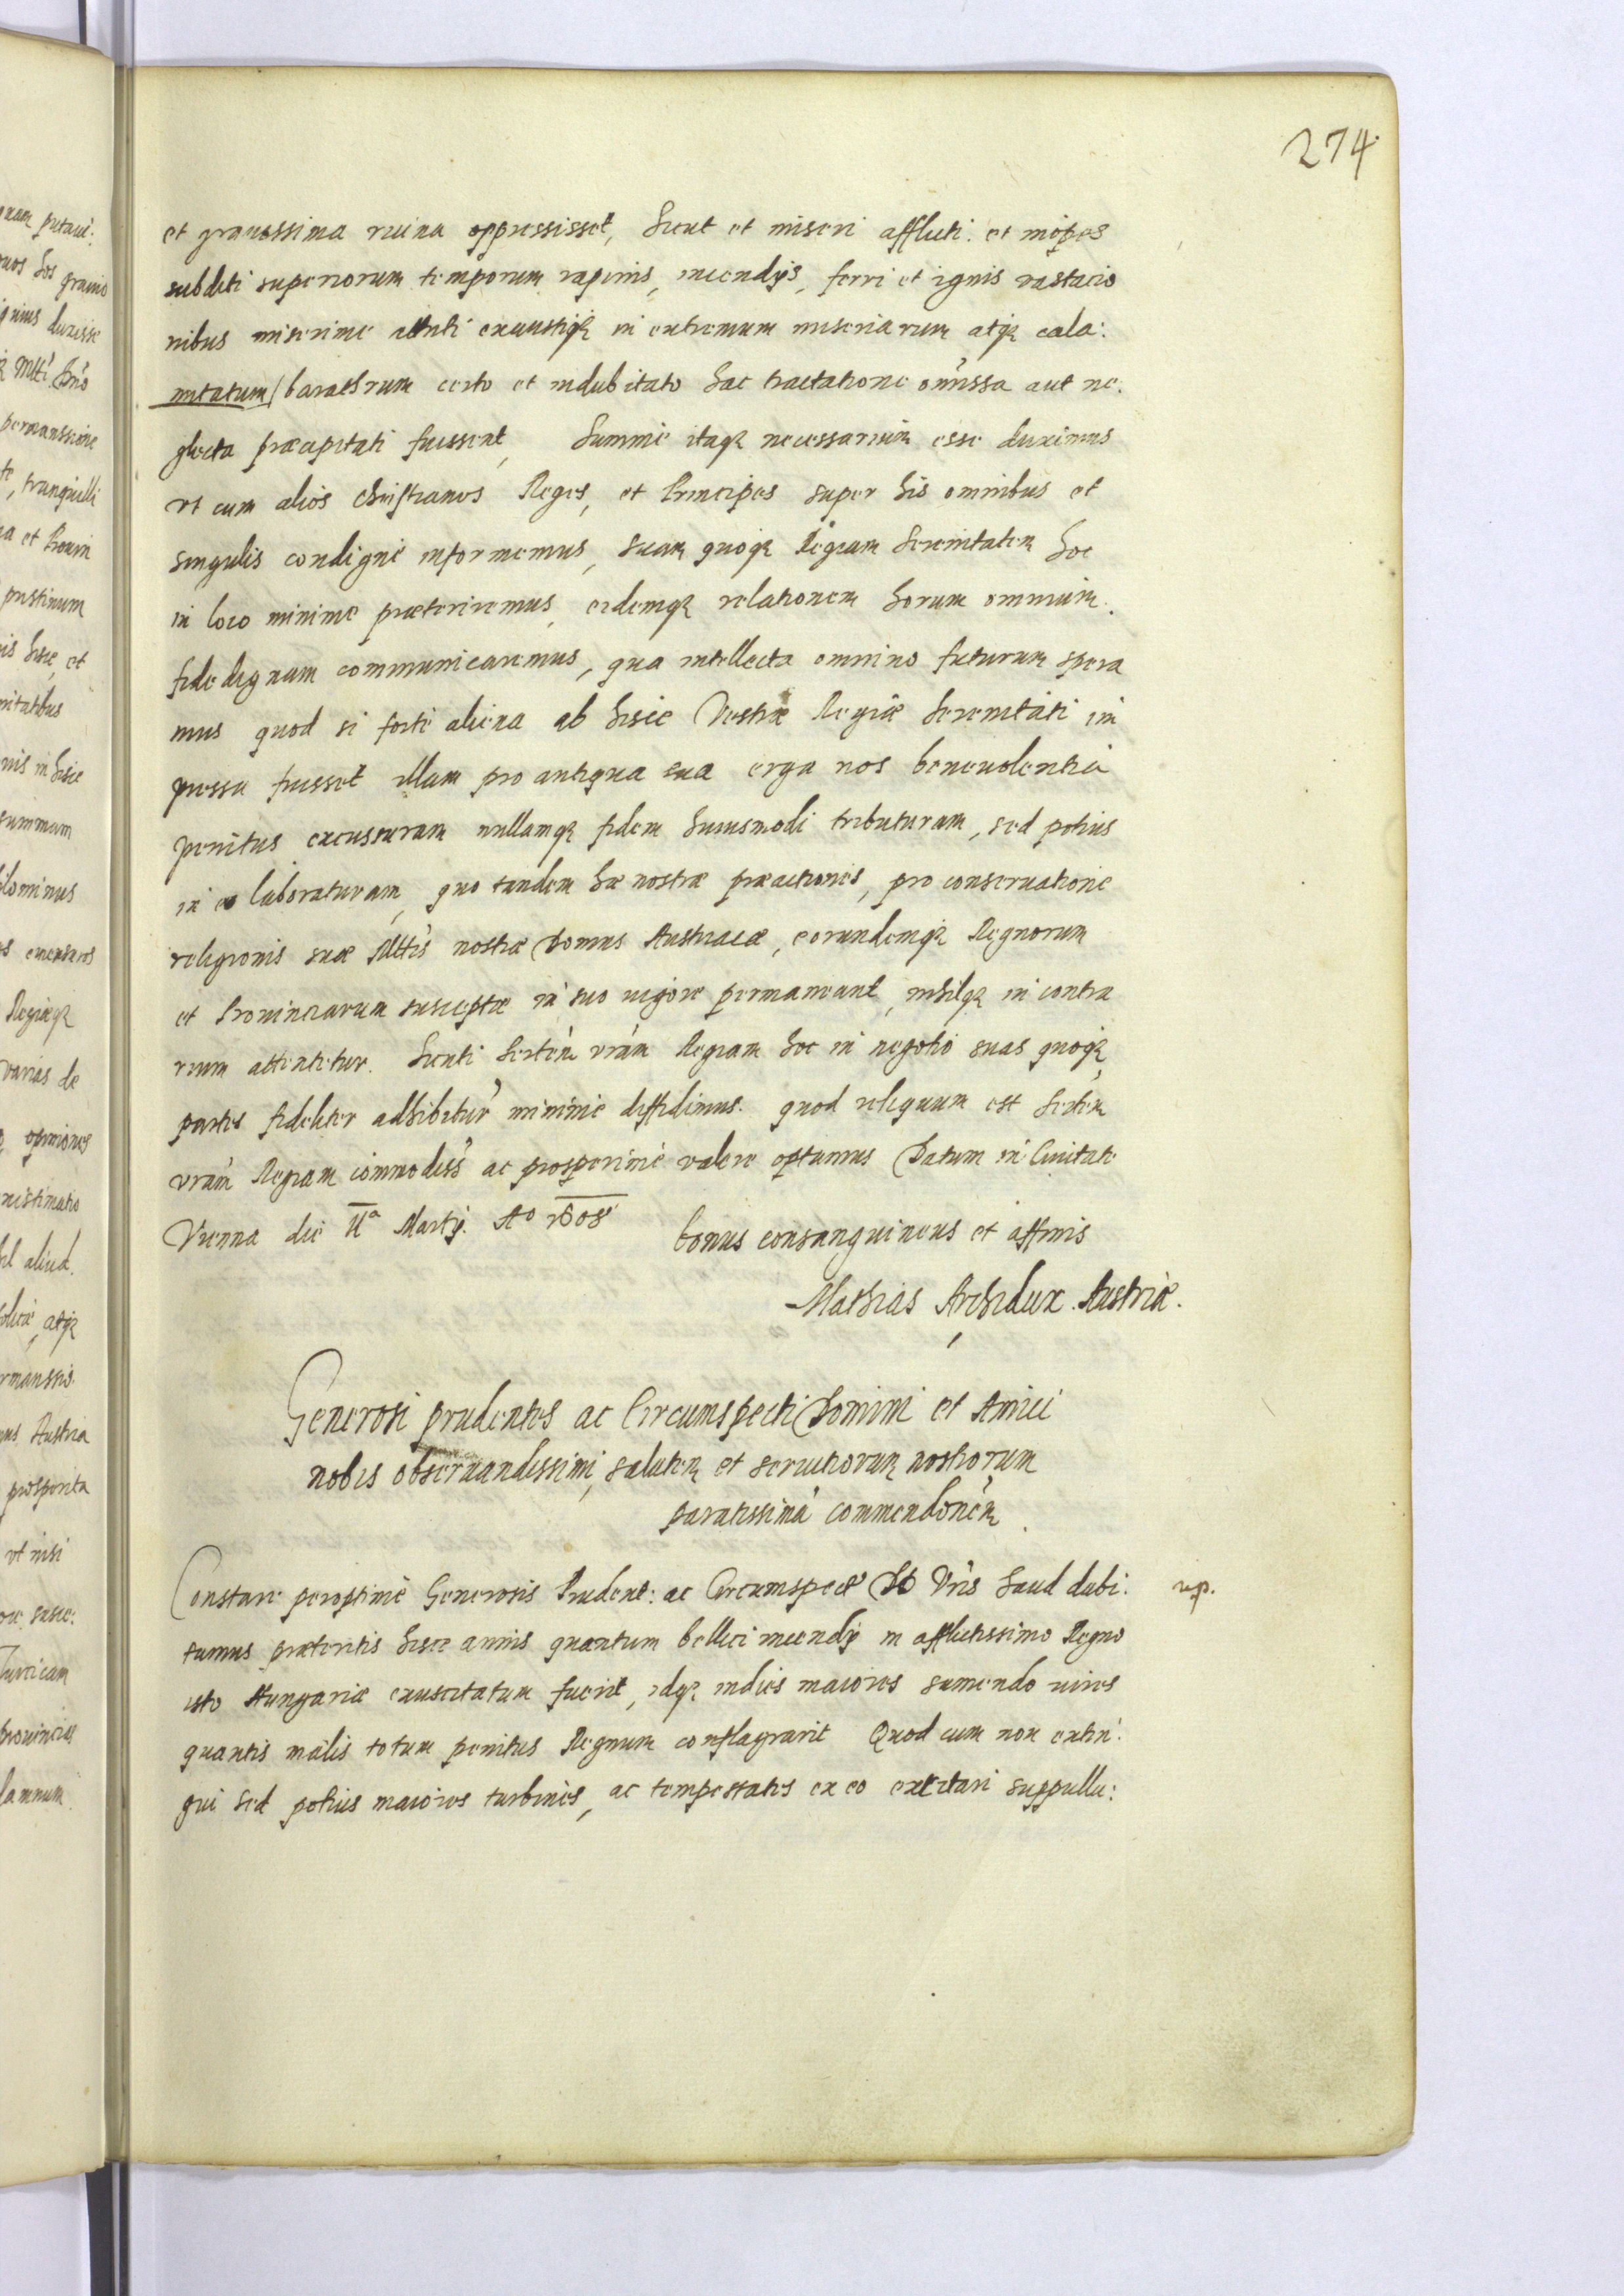 274
et grauissima ruina oppressisset, Sicut et miseri afflicti et inópes
subditi superiorum temporum rapinis, incendijs, ferri et ignis vastacio
nibus miserime attriti exaustiq in extremum miseriarum atq cala:
mitatum barathrum certo et indubitato hac tractatione omissa aut ne:
glecta præcipitati fuissent, Summè itaq necessarium esse duximus
vt cum aliòs Christianos Reges, et Principes super his omnibus et
singulis condignè informemus, suam quoq Regiam Serenitatem hoc
in loco minime præteriremus, eidemq relationem horum omnium
fide dignam communicaremus, qua intellecta omnino futurum spera
mus quod si fortè aliena ab hisce Vestræ Regiæ Serenitati im
pressa fuisset illam pro antiqua sua erga nos beneuolentia
penitus excussuram nullamq fidem huiusmodi tributuram, sed potius
in eo laboraturam, quo tandem hæ nostræ præactiones, pro conseruatione
religionis suæ Mttis nostræ Domus Austriacæ, eorundemq Regnorum
et Prouinciarum susceptæ in suo uigore permaneant, nihilq in contra
rium attentetur. Sicuti Sertem vram Regiam hoc in negotio suas quoq
partes fideliter adhibitur minimè diffidimus. quod reliquum est Sertem
vram Regiam commodiss ac prosperime valere optamus Datum in Ciuitate
Vienna die IIa Martij. Ao 1608
bonus consanguineus et affinis
Mathias Archidux Austriæ.
Generosi prudentes ac Circumspecti Domini et Amici
nobis obseruandissimi, salutem et seruitiorum nostrorum
paratissima commendonem
Constare peroptimè Generosis Prudent: ac Circumspect D Vris haud dubi:
up.
tamus præteritis hisce annis quantum bellici incendij in afflictissimo Regno
isto Hungariæ exuscitatum fuerit, idq indies maiores sumendo uires
quantis malis totum penitus Regnum conflagrarit Quod cum non extin:
gui sed potius maiores turbines, ac tempestates ex eo excitari suppullu: